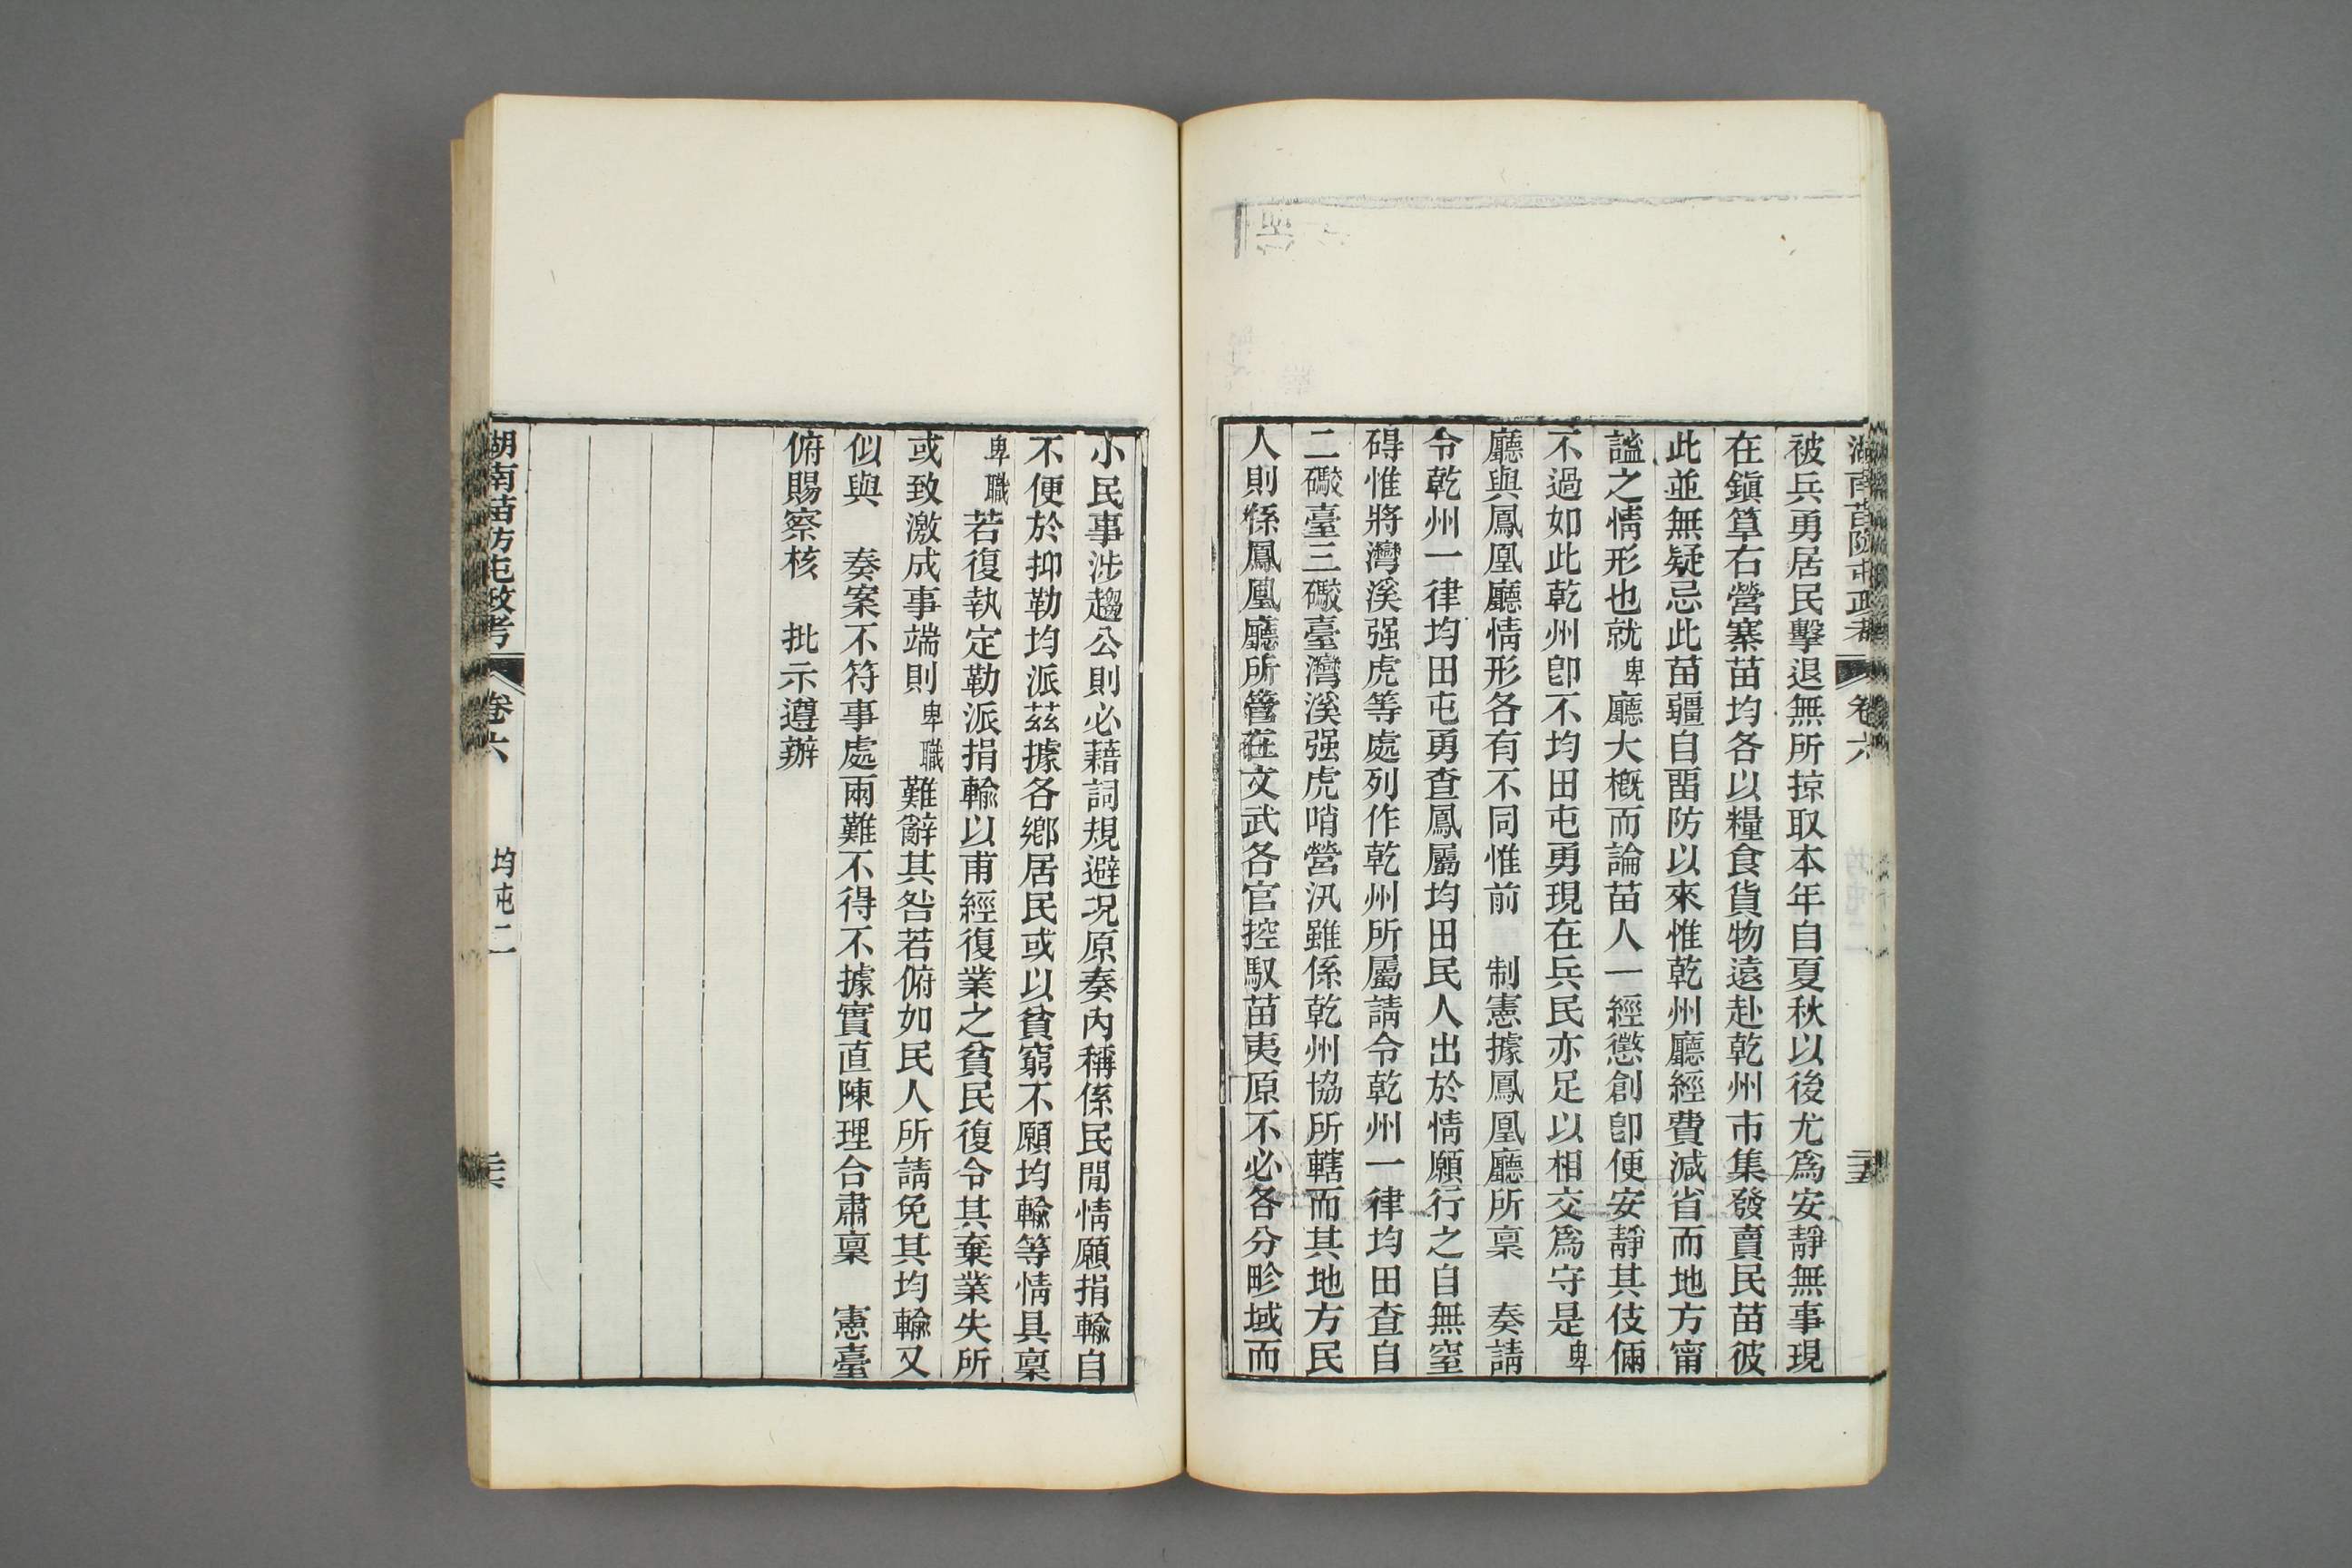 湖南苗防屯政考 卷六 二十五
被兵勇居民擊退無所掠取本年自夏秋以後尤爲安靜無事現
在鎭筸右營寨苗均各以糧食貨物遠赴乾州市集發賣民苗彼
此並無疑忌此苗疆自畱防以來惟乾州廳經費減省而地方甯
謐之情形也就卑廳大槪而論苗人一經懲創卽便安靜其伎倆
不過如此乾州卽不均田屯勇現在兵民亦足以相交爲守是卑
廳與鳳凰廳情形各有不同惟前 制憲據鳳凰廳所稟 奏請
令乾州一律均田屯勇查鳳屬均田民人出於情願行之自無窒
碍惟將灣溪强虎等處列作乾州所屬請令乾州一律均田查自
二礮臺三礮臺灣溪强虎哨營汛雖係乾州協所轄而其地方民
人則係鳳凰廳所管在文武各官控馭苗夷原不必各分畛域而
小民事涉趨公則必藉詞規避况原奏內稱係民閒情願捐輸自
不便於抑勒均派茲據各鄕居民或以貧窮不願均輸等情具稟
卑職若復執定勒派捐輸以甫經復業之貧民復令其棄業失所
或致激成事端則卑職難辭其咎若俯如民人所請免其均輸又
似與 奏案不符事處兩難不得不據實直陳理合肅稟 憲臺
俯賜察核 批示遵辦
湖南苗防屯政考 卷六 均屯二 二十六